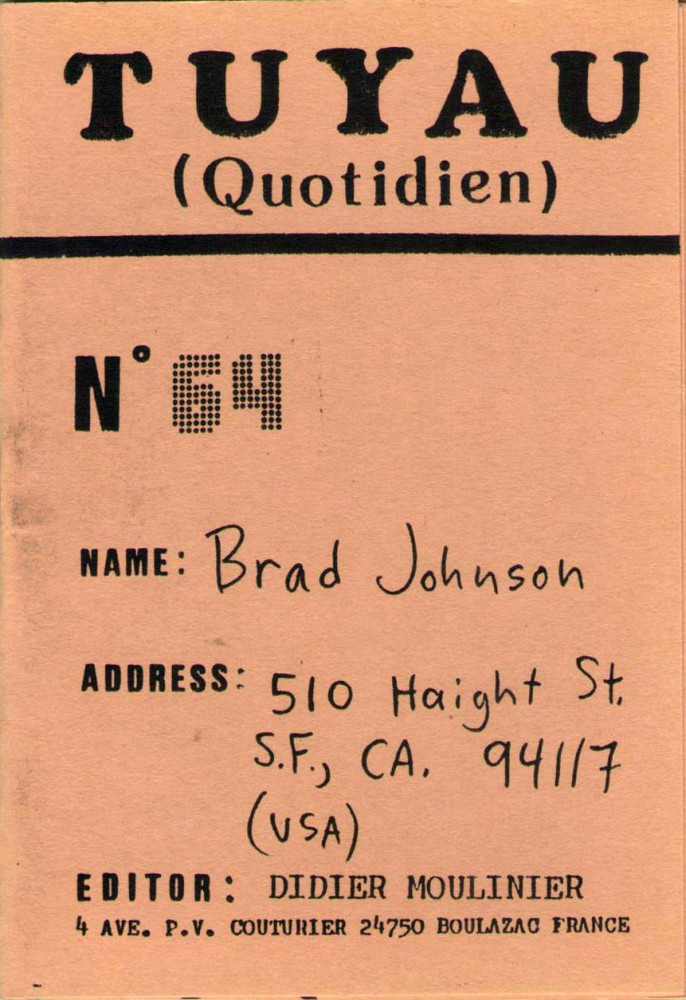 TUYAU
(Quotidien)
N° 64
NAME: Brad Johnson
ADDRESS: 510 Haight St.
S.F., CA. 94117
(USA)
EDITOR: DIDIER MOULINIER
4 AVE. P.V. COUTURIER 24750 BOULAZAC FRANCE